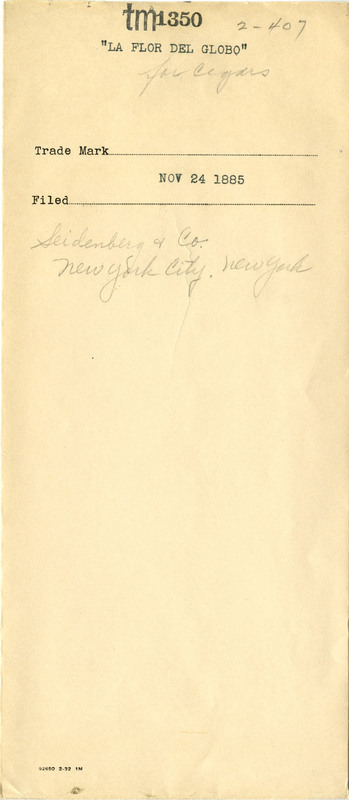 tm1350 2-407
"LA FLOR DEL GLOBO"
for Cigars
Trade Mark
NOV 24 1885
Filed
Seidenberg & Co.
New York City, New York
92650 2-32 1M